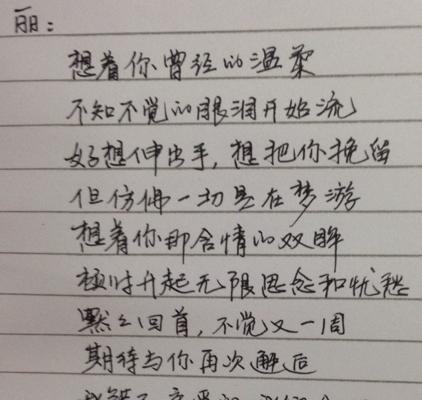 丽：
想着你曾经的温柔
不知不觉的眼泪开始流
好想伸出手，想把你挽留
但仿佛一切是在梦游
想着你那含情的双眸
顿时升起无限思念和忧愁
默默回首，不觉又一周
期待与你再次邂后